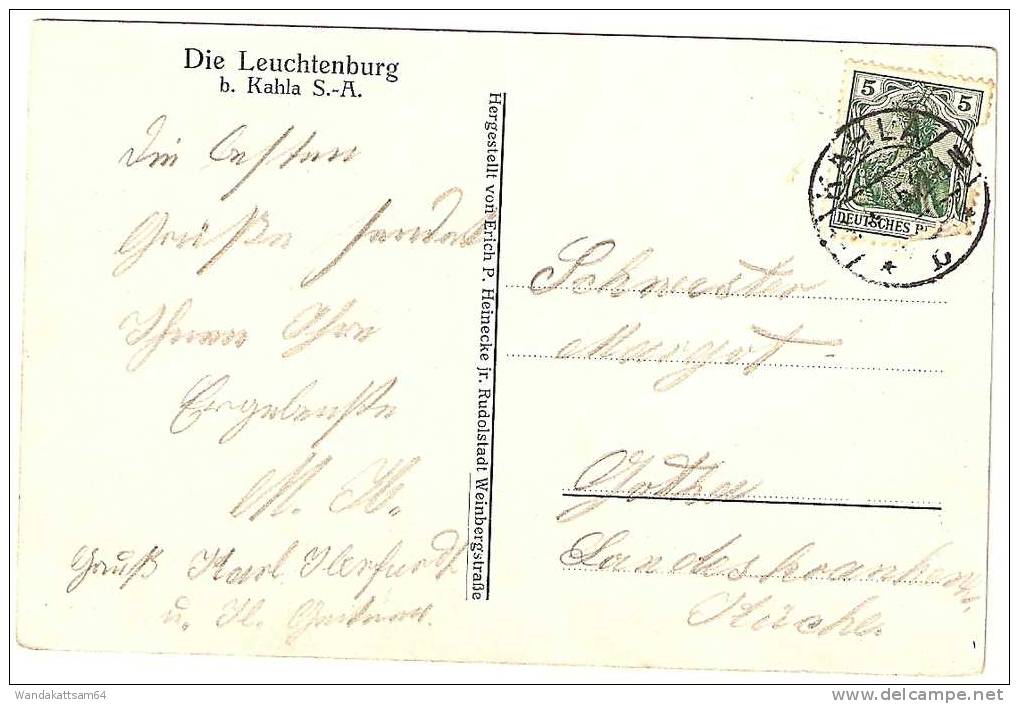 Die Leuchtenburg
b. Kahla S.-A.
Die besten
Grüße sendet
Ihnen Ihre
Ergebenste
M. H.
Gruß Karl
u.
Hergestellt von Erich P. Heinecke jr. Rudolstadt Weinbergstraße
5 5
DEUTSCHES
KAHLA
Schwester
Margot
Gotha
Landeskrankenh.
Küche
Wandakattsam64
www.delcampe.net